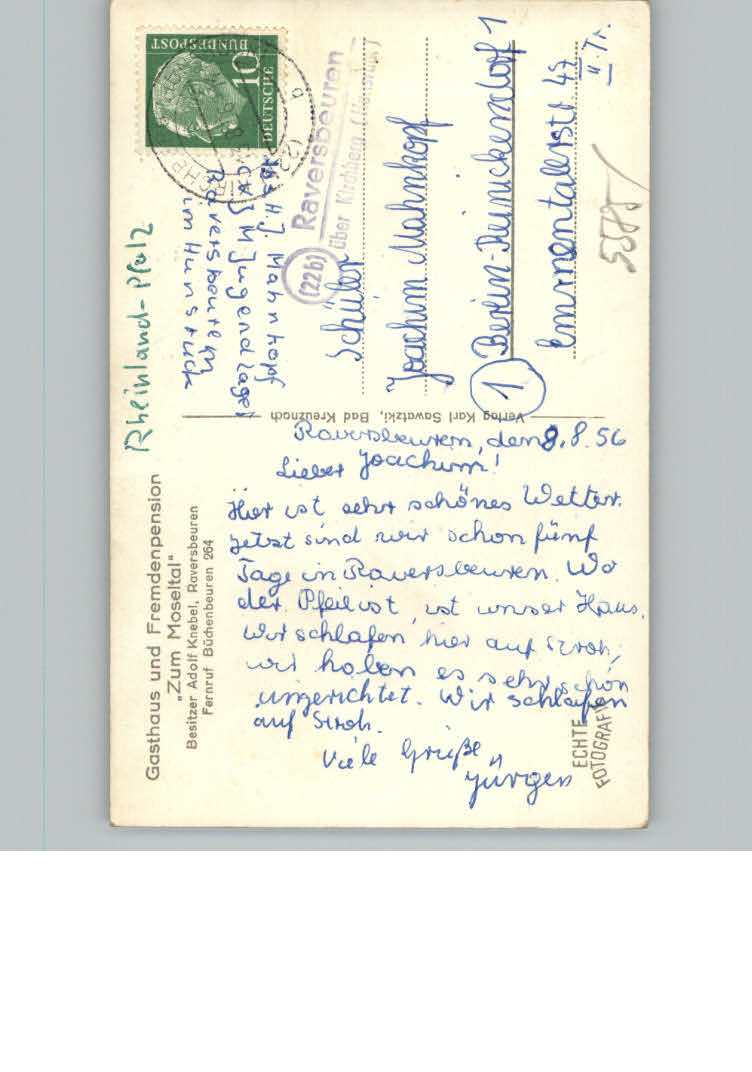 Rheinland-Pfalz
Gasthaus und Fremdenpension
„Zum Moseltal"
Besitzer Adolf Knebel, Raversbeuren
Fernruf Büchenbeuren 264
Raversbeuren, den 8.8.56
Lieber Joachim!
Hier ist sehr schönes Wetter.
Jetzt sind wir schon fünf
Tage in Raversbeuren. Wo
der Pfeil ist, ist unser Haus.
Wir schlafen hier auf Stroh,
wir haben es sehr schön
eingerichtet. Wir schlafen
auf Stroh.
Viele Grüße
Jürgen
ECHTE
FOTOGRAFIE
Verlag Karl Sawatzki, Bad Kreuznach
DEUTSCHE
BUNDESPOST
10
H.J. Mahnkopf
Jugendlager
Raversbeuren
im Hunsrück
(22b) Raversbeuren
über Kirchberg (Hunsrück)
Schüler
Joachim Mahnkopf
1 Berlin-Reinickendorf 1
Emmentalerstr. 49
II Tr.